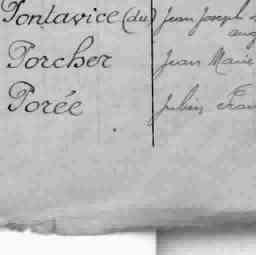 Pontavice (du) Jean Joseph
aug
Porcher Jean Marie
Porée Julien Fran